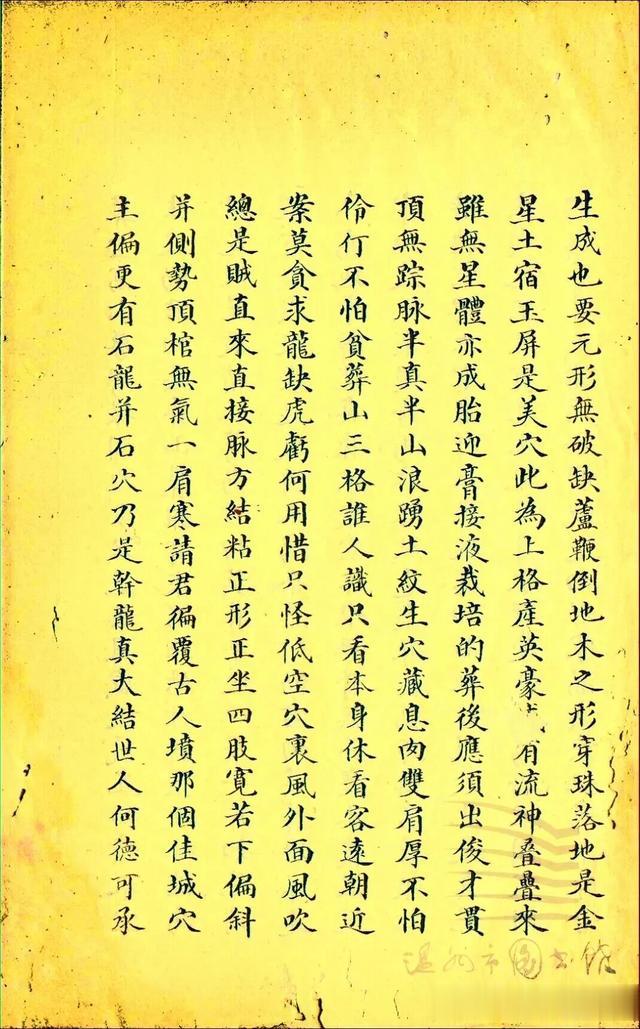 生成也要元形無破缺蘆鞭倒地木之形穿珠落地是金
星土宿玉屏是美穴此為上格產英豪有流神叠疊來
雖無星體亦成胎迎膏接液栽培的葬後應須出俊才貫
頂無踪脉半真半山浪踴土紋生穴藏息肉雙肩厚不怕
伶仃不怕貧葬山三格誰人識只看本身休看客遠朝近
案莫貪求龍缺虎虧何用惜只怪低空穴裏風外面風吹
總是賊直來直接脉方結粘正形正坐四肢寬若下偏斜
并側勢頂棺無氣一肩寒請君徧覆古人墳那個佳城穴
主偏更有石龍并石穴乃是幹龍真大結世人何德可承
溫州市圖書館